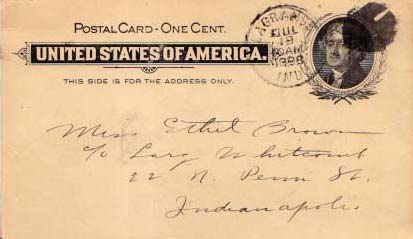 POSTAL CARD - ONE CENT.
UNITED STATES OF AMERICA.
THIS SIDE IS FOR THE ADDRESS ONLY.
LAGRANGE
JUL
19
10AM
1898
IND.
Miss Ethel Brown
c/o Larz Whitcomb
22 N. Penn St.
Indianapolis